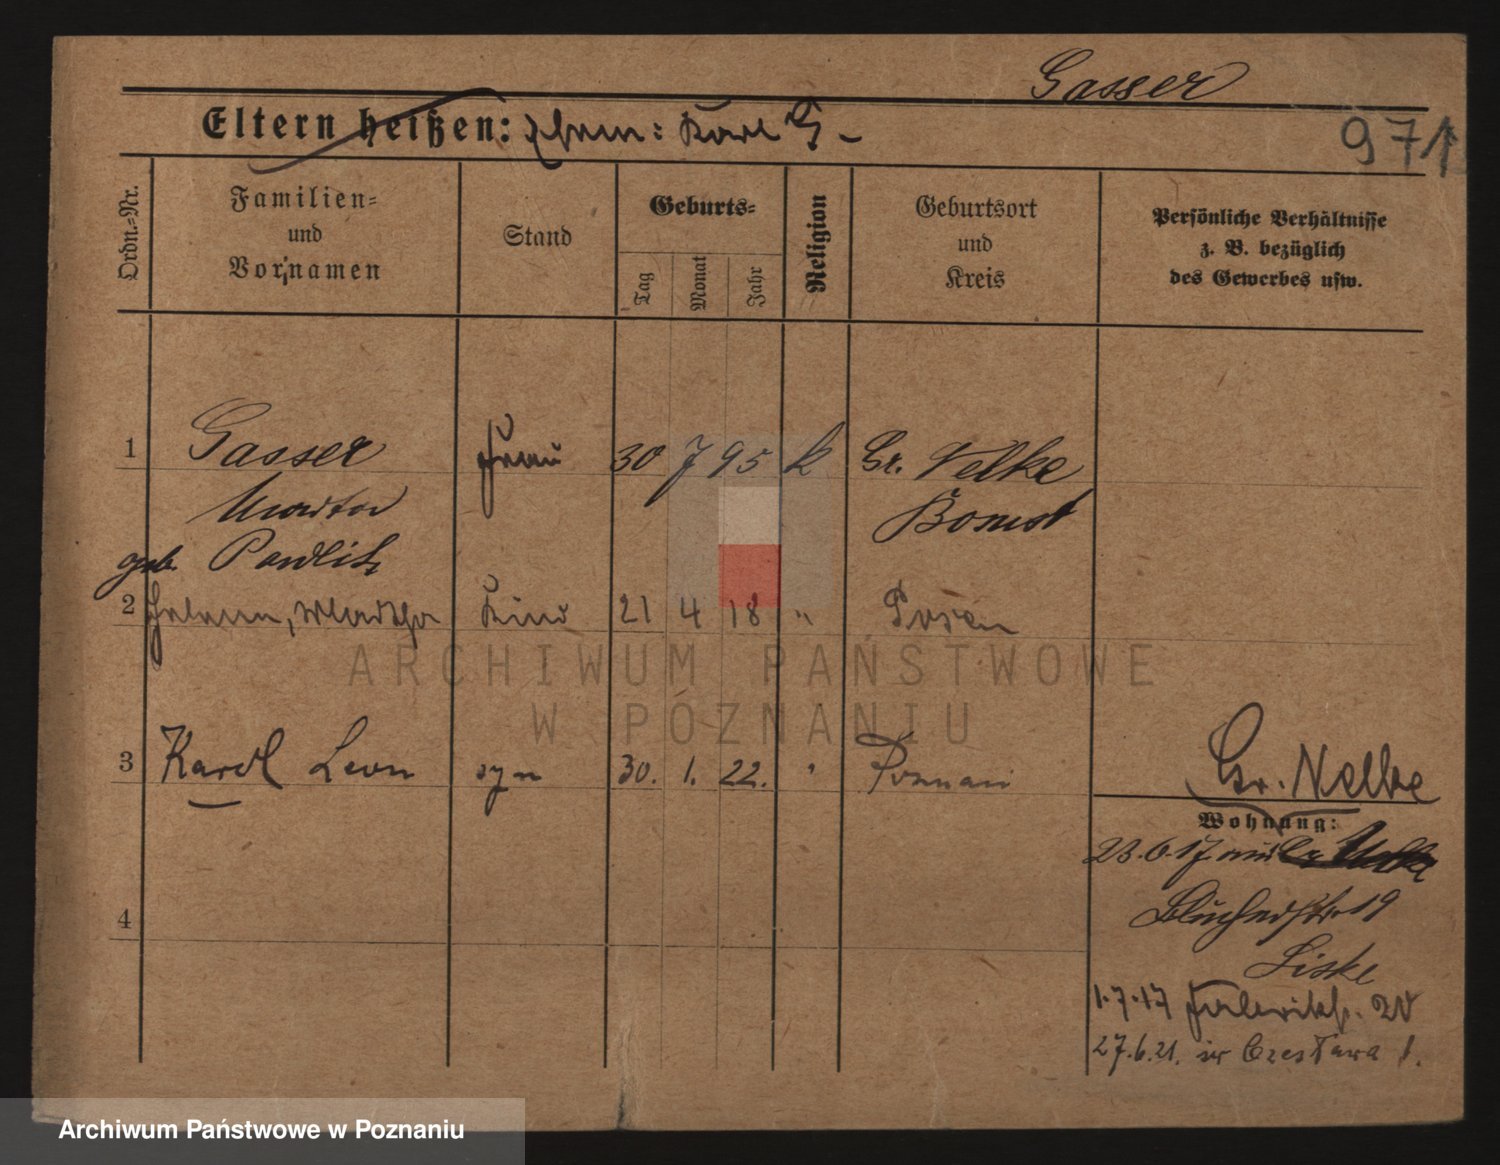 Gasser
Eltern heißen: Ehem: Karl G-
971
Ordn.-Nr.
Familien-
und
Vornamen
Stand
Geburts-
Tag
Monat
Jahr
Religion
Geburtsort
und
Kreis
Persönliche Verhältnisse
z. B. bezüglich
des Gewerbes usw.
1 Gasser Frau 30 7 95 k Gr. Nelke
Bomst
geb.
2 Helena, Kind 21 4 18 " Posen
3 Karol Leon syn 30. 1. 22. " Poznań
4
Gr. Nelke
Wohnung:
23.6.17 aus Gr Nelke
Blücherstr. 19
Liske
1.7.17 Fabrikstr. 20
27.6.21. św Czesława 1.
ARCHIWUM PAŃSTWOWE
W POZNANIU
Archiwum Państwowe w Poznaniu